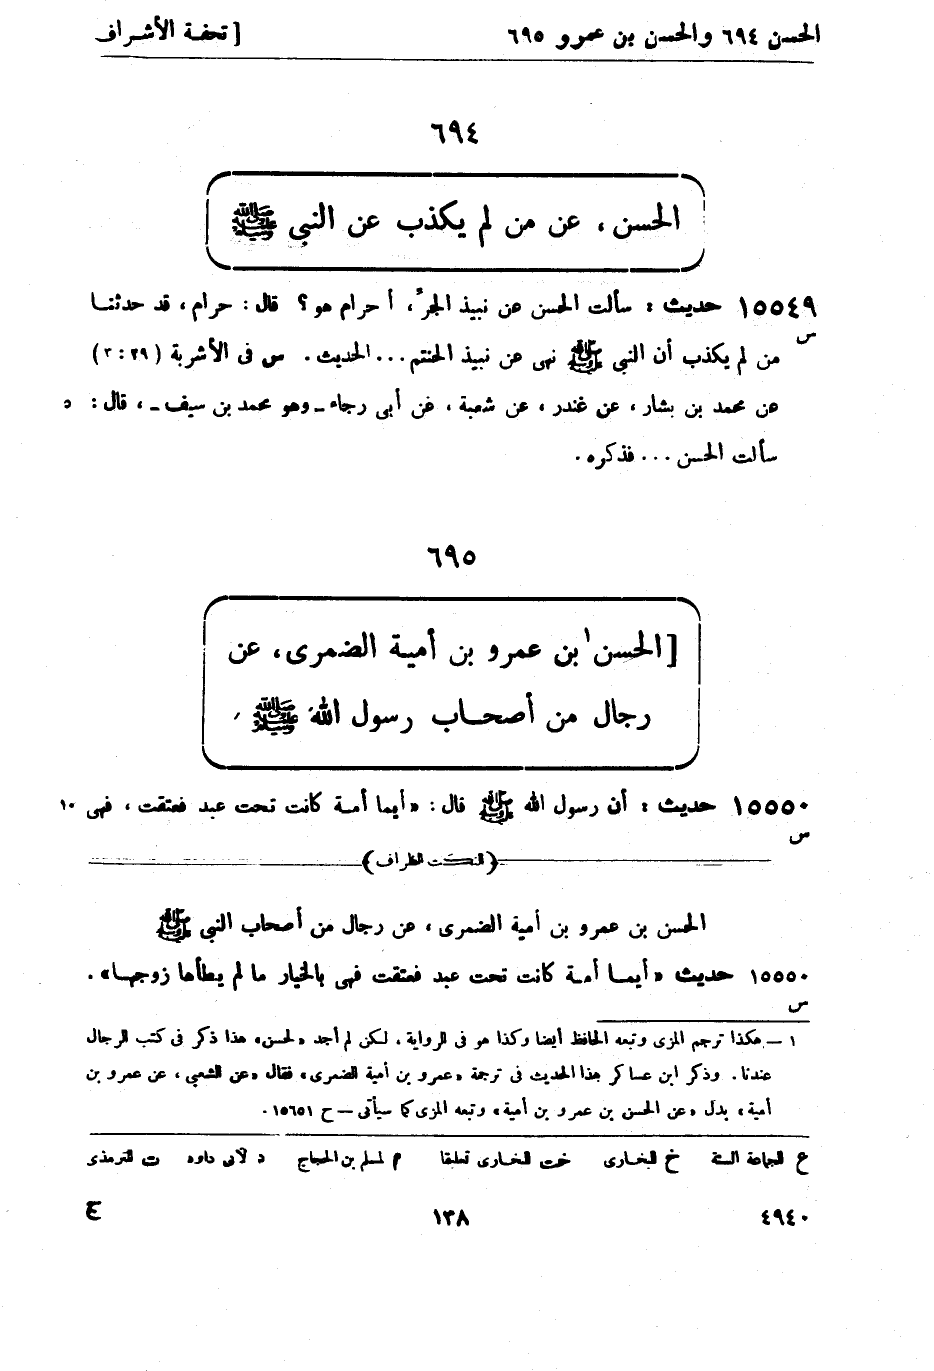 الحسن ٦٩٤ والحسن بن عمرو ٦٩٥ [ تحفة الأشراف
٦٩٤
الحسن ، عن من لم يكذب عن النبي ﷺ
١٥٥٤٩ حديث : سألت الحسن عن نبيذ الجر ، أ حرام هو ؟ قال : حرام ، قد حدثنا
س
من لم يكذب أن النبي ﷺ نهى عن نبيذ الحنتم ... الحديث . س فى الأشربة ( ٢٩ : ٣ )
عن محمد بن بشار ، عن غندر ، عن شعبة ، عن أبى رجاء ـ وهو محمد بن سيف ـ ، قال : ٥
سألت الحسن ... فذكره .
٦٩٥
[ الحسن ١ بن عمرو بن أمية الضمرى ، عن
رجال من أصحاب رسول الله ﷺ
١٥٥٥٠ حديث : أن رسول الله ﷺ قال : « أيما أمة كانت تحت عبد فعتقت ، فهى ١٠
س
( النكت الظراف )
الحسن بن عمرو بن أمية الضمرى ، عن رجال من أصحاب النبى ﷺ
١٥٥٥٠ حديث « أيما أمة كانت تحت عبد فعتقت فهى بالخيار ما لم يطأها زوجها » .
س
١ ـ هكذا ترجم المزى وتبعه الحافظ أيضا وكذا هو فى الرواية ، لكن لم أجد « لحسن » هذا ذكر فى كتب الرجال
عندنا . وذكر ابن عساكر هذا الحديث فى ترجمة « عمرو بن أمية الضمرى » فقال « عن الشعبي ، عن عمرو بن
أمية » بدل « عن الحسن بن عمرو بن أمية » وتبعه المزى كما سيأتى ـ ح ١٥٦٥١ .
ع للجماعة الستة خ للبخارى خت للبخارى تعليقا م لمسلم بن الحجاج د لأبى داود ت للترمذى
٤٩٤٠ ١٣٨ ٤